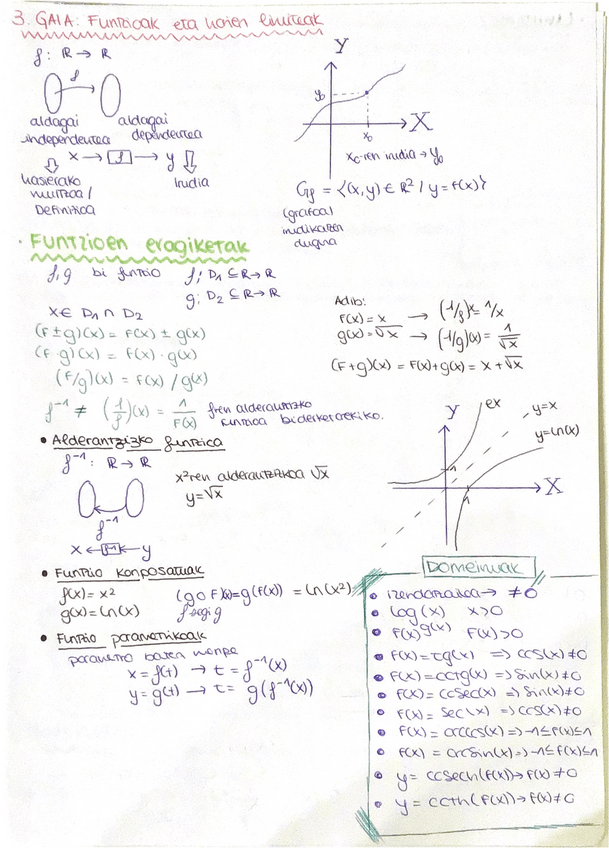 3. GAIA: Funtzioak eta haien limiteak
f: ℝ → ℝ
f
aldagai independentea
aldagai dependentea
x → f → y
hasierako multzoa / Definizioa
Irudia
Y
y₀
X
x₀
x₀-ren irudia → y₀
Gf = {(x,y) ∈ ℝ² / y = f(x)}
(grafoa)
irudikatzen
duguna
· FUNTZIOEN eragiketak
f, g bi funtzio f; D₁ ⊆ ℝ → ℝ
g; D₂ ⊆ ℝ → ℝ
x ∈ D₁ ∩ D₂
(f ± g)(x) = f(x) ± g(x)
(f · g)(x) = f(x) · g(x)
(f/g)(x) = f(x) / g(x)
f⁻¹ ≠ (1/f)(x) = 1/f(x) f-ren alderantzizko funtzioa biderketarekiko.
Adib:
f(x) = x → (1/f)x = 1/x
g(x) = √x → (1/g)(x) = 1/√x
(f+g)(x) = f(x)+g(x) = x + √x
• Alderantzizko funtzioa
f⁻¹: ℝ → ℝ
f⁻¹
x ← f⁻¹ ← y
x²ren alderantzizkoa √x
y = √x
Y
ex
y=x
y=ln(x)
1
1
X
• Funtzio konposatuak
f(x) = x² (g o f)(x) = g(f(x)) = ln(x²)
g(x) = ln(x) f segi g
• Funtzio parametrikoak
parametro baten menpe
x = f(t) → t = f⁻¹(x)
y = g(t) → t = g(f⁻¹(x))
Domeinuak
• izendatzailea → ≠ 0
• log(x) x>0
• f(x)^g(x) f(x)>0
• f(x) = tg(x) => cos(x) ≠ 0
• f(x) = cotg(x) => sin(x) ≠ 0
• f(x) = cosec(x) => sin(x) ≠ 0
• f(x) = sec(x) => cos(x) ≠ 0
• f(x) = arccos(x) => -1 ≤ f(x) ≤ 1
• f(x) = arcsin(x) => -1 ≤ f(x) ≤ 1
• y = cosech(f(x)) → f(x) ≠ 0
• y = coth(f(x)) → f(x) ≠ 0